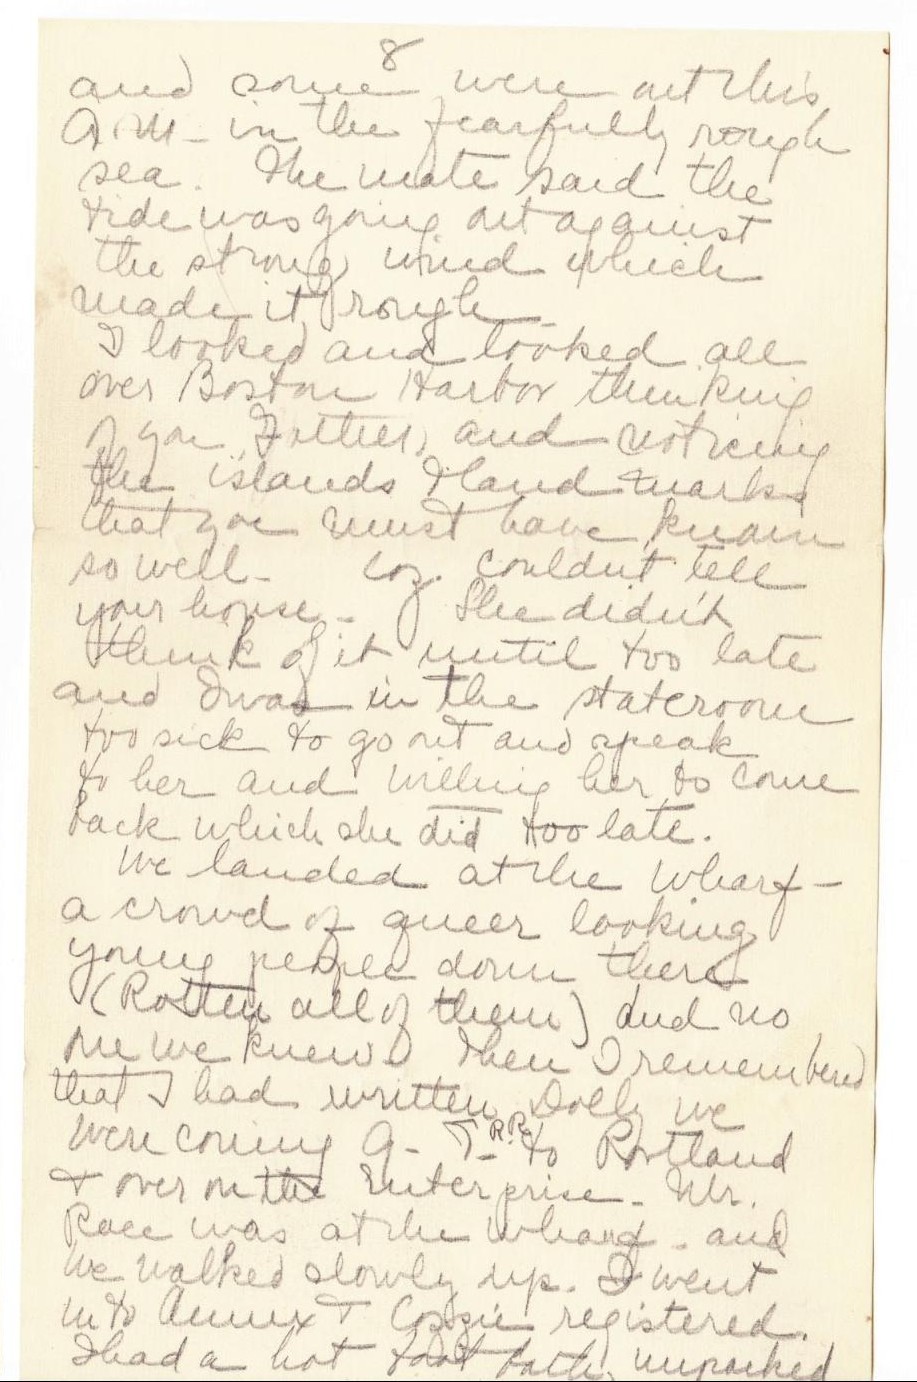 8
and some were out this
A.M- in the fearfully rough
sea. The mate said the
tide was going out against
the strong wind which
made it rough -
I looked and looked all
over Boston Harbor thinking
of you Father, and noticing
the islands & land marks
that you must have known
so well - Coz. couldn't tell
your house - She didn't
think of it until too late
and I was in the stateroom
too sick to go out and speak
to her and willing her to come
back which she did too late.
We landed at the wharf -
a crowd of queer looking
young people down there
(Rotten all of them) and no
one we knew. Then I remembered
that I had written Dolly we
were coming G. T. R.R. to Portland
& over on the Enterprise - Mr.
Race was at the wharf - and
we walked slowly up. I went
into Annex & Cozzie registered.
I had a hot foot bath, unpacked